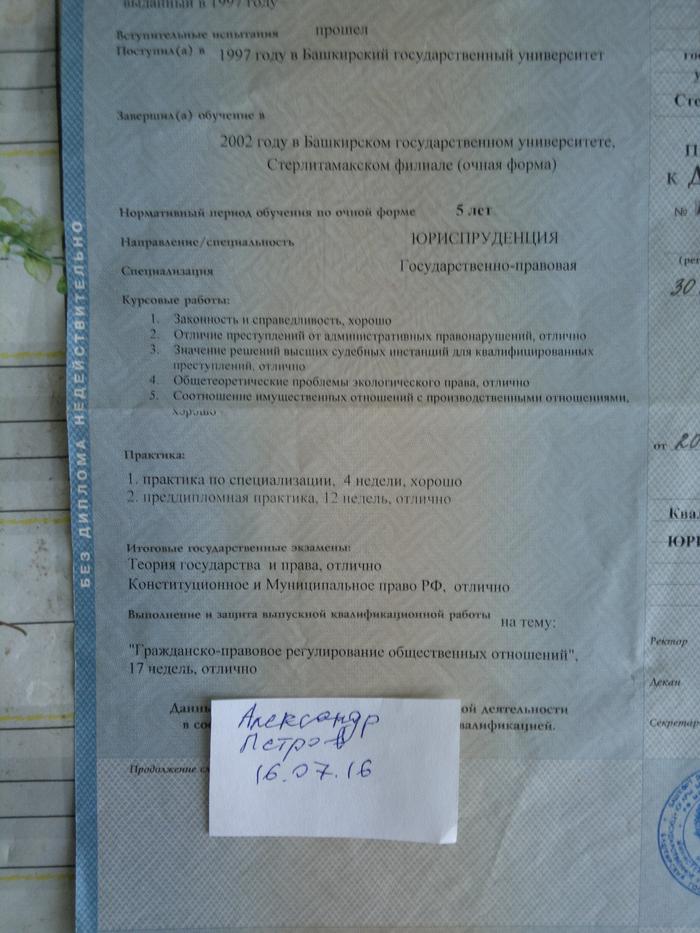 выданный в 1997 году
Вступительные испытания прошел
Поступил(а) в 1997 году в Башкирский государственный университет
Завершил(а) обучение в
2002 году в Башкирском государственном университете,
Стерлитамакском филиале (очная форма)
Нормативный период обучения по очной форме 5 лет
Направление/специальность ЮРИСПРУДЕНЦИЯ
Специализация Государственно-правовая
Курсовые работы:
1. Законность и справедливость, хорошо
2. Отличие преступлений от административных правонарушений, отлично
3. Значение решений высших судебных инстанций для квалифицированных
преступлений, отлично
4. Общетеоретические проблемы экологического права, отлично
5. Соотношение имущественных отношений с производственными отношениями,
хорошо
Практика:
1. практика по специализации, 4 недели, хорошо
2. преддипломная практика, 12 недель, отлично
Итоговые государственные экзамены:
Теория государства и права, отлично
Конституционное и Муниципальное право РФ, отлично
Выполнение и защита выпускной квалификационной работы на тему:
"Гражданско-правовое регулирование общественных отношений",
17 недель, отлично
ой деятельности
в соо
валификацией.
Продолжение с
БЕЗ ДИПЛОМА НЕДЕЙСТВИТЕЛЬНО
Александр
Петров
16.07.16
Сте
П
к Д
№
(рег
30
от 20
Квал
ЮРИ
Ректор
Декан
Секретар